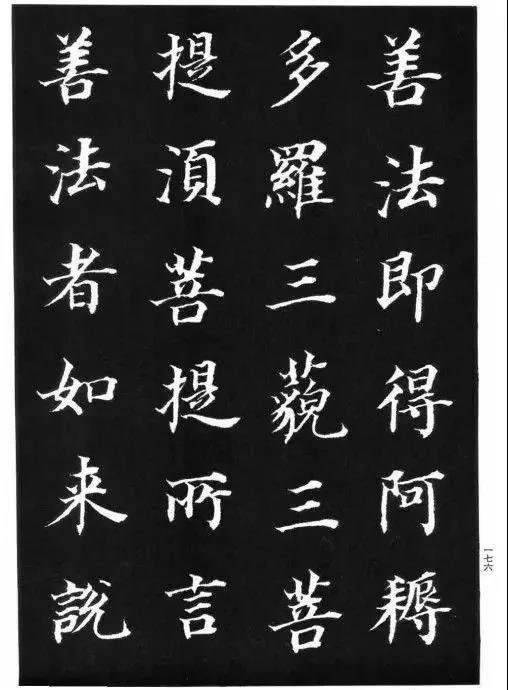 善法即得阿耨
多羅三藐三菩
提湏菩提所言
善法者如来說
一七六